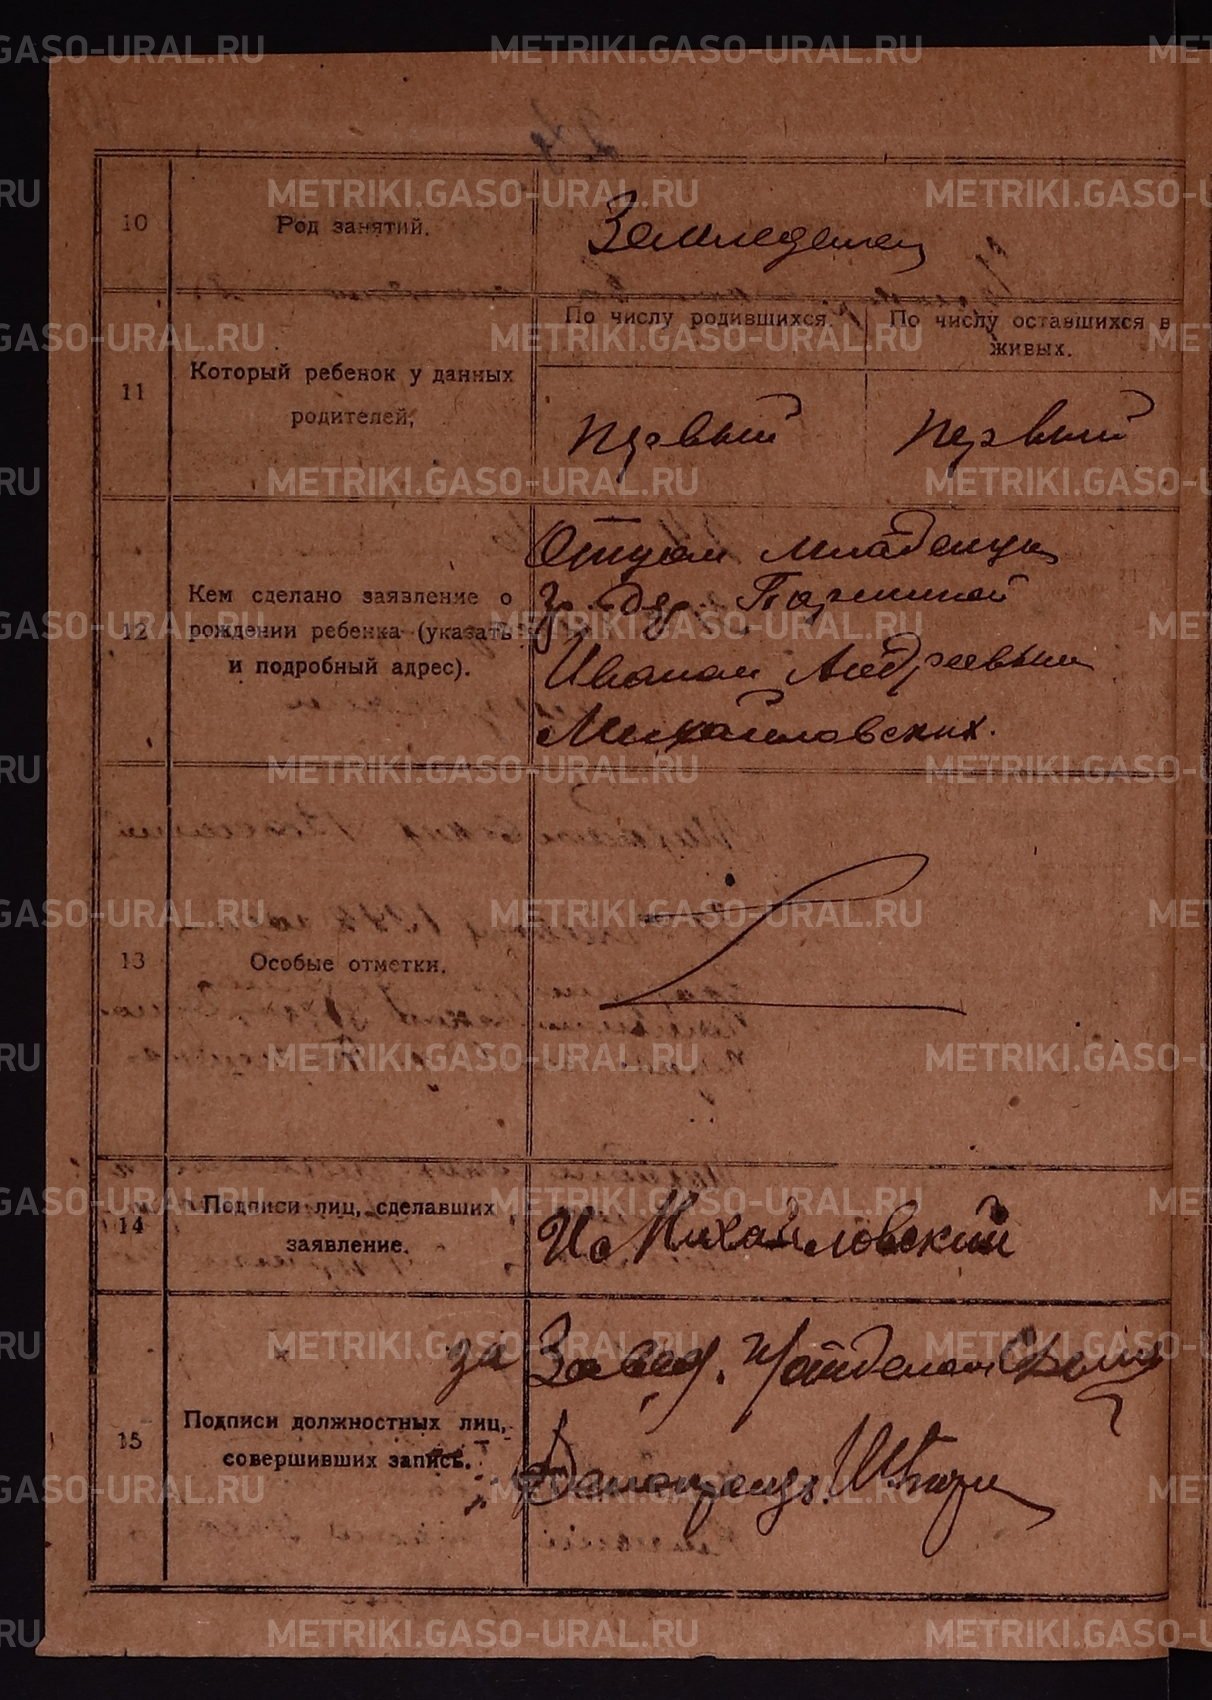 10
Род занятий.
Земледелец
11
Который ребенок у данных
родителей,
По числу родившихся.
По числу оставшихся в
живых.
первый
первый
12
Кем сделано заявление о
рождении ребенка (указать
и подробный адрес).
Отцом младенца
гр. дер.
Иваном Андреевым
Михайловских.
13
Особые отметки.
14
Подписи лиц, сделавших
заявление.
И Михайловский
15
Подписи должностных лиц,
совершивших запись.
за Завед.
Делопроизв.
METRIKI.GASO-URAL.RU